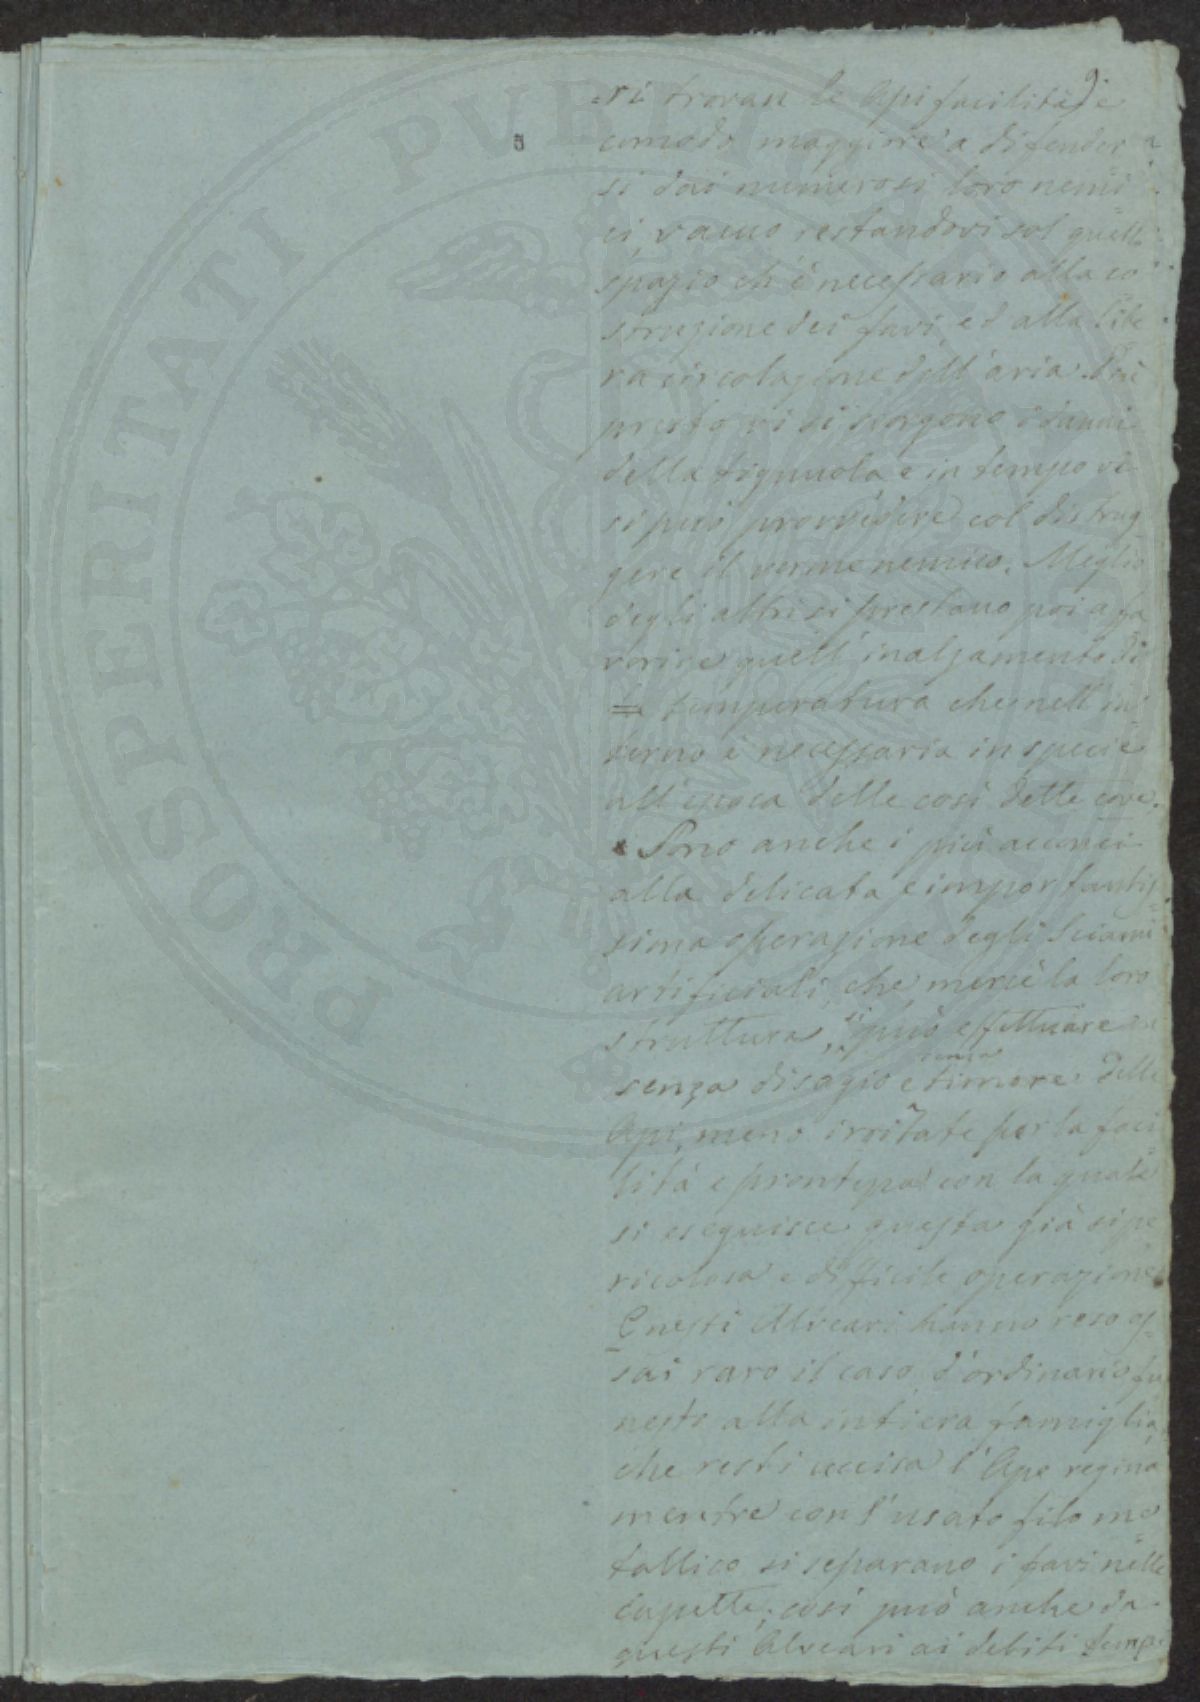 9.
=ri trovan le Api facilità, e
comodo maggiore a difender
si dai numerosi loro nemi
ci, vacuo restandovi sol quello
spazio ch'è necessario alla co
struzione dei favi, ed alla libe
ra circolazione dell'aria. Più
presto vi si scorgono i danni
della tignuola e in tempo vi
si può provvedere col distrug
gere il verme nemico. Meglio
degli altri si prestano poi a fa
vorire quell'inalzamento di
temperatura che nell'in
terno è necessaria in specie
all'epoca delle così dette cove.
Sono anche i più acconci
alla delicata e importantis
sima operazione degli Sciami
artificiali, che, mercè la loro
struttura, si può effettuare
senza disagio e senza timore delle
Api, meno irritate per la faci
lità e prontezza con la quale
si eseguisce questa già sì pe
ricolosa e difficile operazione
Questi Alveari hanno reso as
sai raro il caso, d'ordinario fu
nesto alla intiera famiglia,
che resti uccisa l'Ape regina
mentre con l'usato filo me
tallico si separano i favi nelle
Cupette; così può anche da
questi Alveari ai debiti temp
PROSPERITATI PUBLICAE